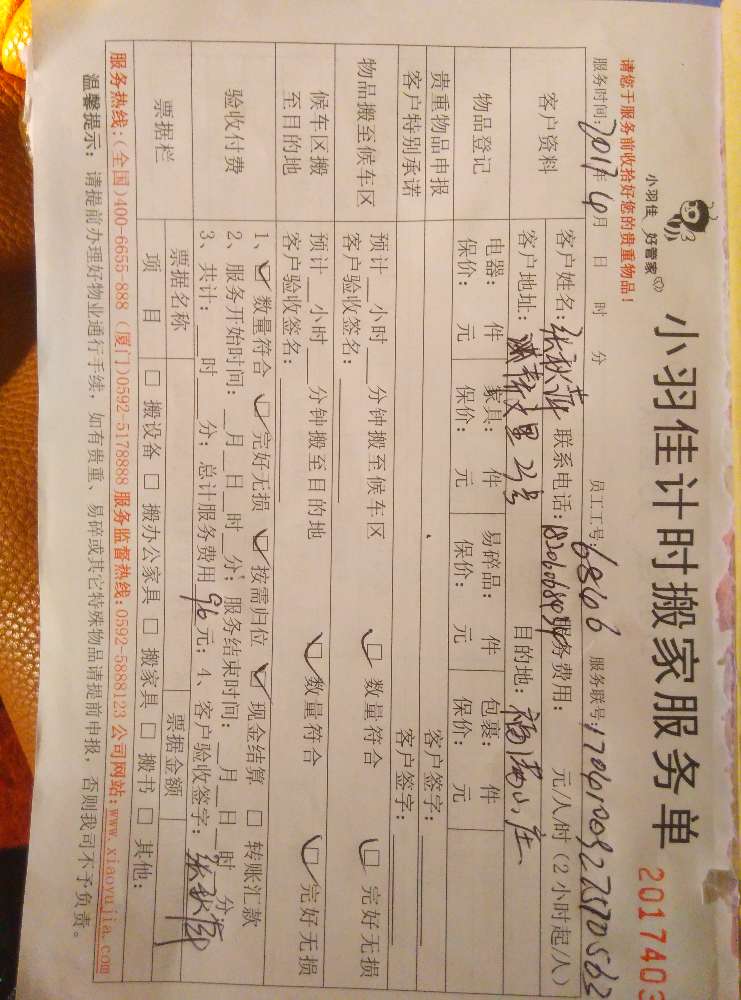 小羽佳 好管家
小羽佳计时搬家服务单
2017403
请您于服务前收拾好您的贵重物品！
服务时间：2017年6月 日 时 分 员工工号：6846 服务联号：
客户资料
客户姓名：张秋萍 联系电话： 服务费用： 元/人/时（2小时起/人）
客户地址： 23号 目的地：
物品登记
电器： 件 家具： 件 易碎品： 件 包裹： 件
保价： 元 保价： 元 保价： 元 保价： 元
贵重物品申报 客户签字：
客户特别承诺 客户签字：
物品搬至候车区
预计 小时 分钟搬至候车区 数量符合 完好无损
客户验收签名：
候车区搬至目的地
预计 小时 分钟搬至目的地 数量符合 完好无损
客户验收签名：
验收付费
1、 数量符合 完好无损 按需归位 现金结算 转账汇款
2、服务开始时间： 月 日 时 分；服务结束时间： 月 日 时 分
3、共计： 时 分；总计服务费用96元；4、客户验收签字：张秋萍
票据栏
票据名称 票据金额
项 目 搬设备 搬办公家具 搬家具 搬书 其他：
服务热线：（全国）400-6655-888（厦门）0592-5178888 服务监督热线：0592-5888123 公司网站：www.xiaoyujia.com
温馨提示：请提前办理好物业通行手续，如有贵重、易碎或其它特殊物品请提前申报，否则我司不予负责。